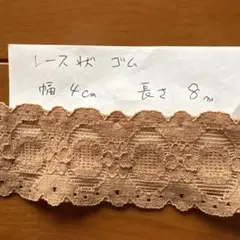 レース状 ゴム
幅 4cm 長さ 8m